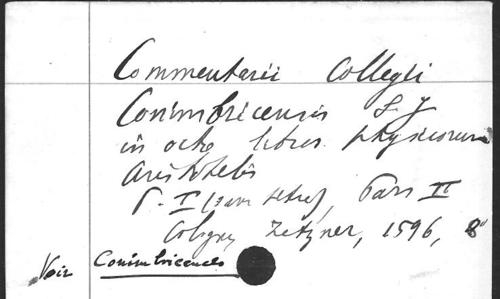 Commentarii Collegii
Conimbricensis S. J
in octo libros physicorum
Aristotelis
P. I (sans titre), Pars II
Cologne, Zetzner, 1596, 8°
Voir Conimbricences